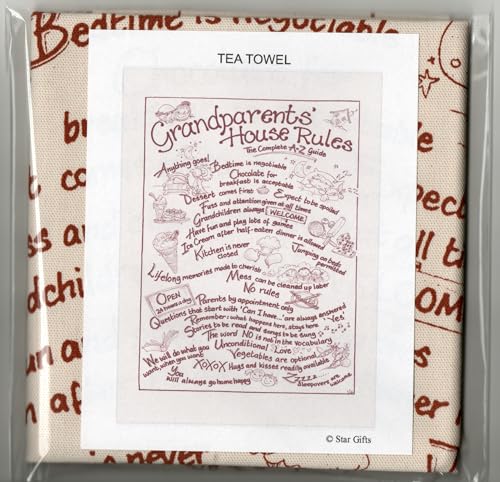 Bedtime is negotiable
TEA TOWEL
Grandparents'
House Rules
The Complete A-Z Guide
Anything goes!
Bedtime is negotiable
Chocolate for
breakfast is acceptable
Dessert comes first
Expect to be spoiled
Fuss and attention given at all times
Grandchildren always WELCOME
Have fun and play lots of games
Ice Cream after half-eaten dinner is allowed
Jumping on beds
permitted
Kitchen is never
closed
Lifelong memories made to cherish
Mess can be cleaned up later
No rules
OPEN
24 hours a day
Parents by appointment only
Questions that start with 'Can I have...' are always answered
Yes
Remember: what happens here, stays here
Stories to be read and songs to be sung
The word NO is not in the vocabulary
Unconditional Love
Vegetables are optional
We will do what you
want, when you want
XOXOX Hugs and kisses readily available
You
will always go home happy
Zzzzz...
Sleepovers are
welcome
© Star Gifts